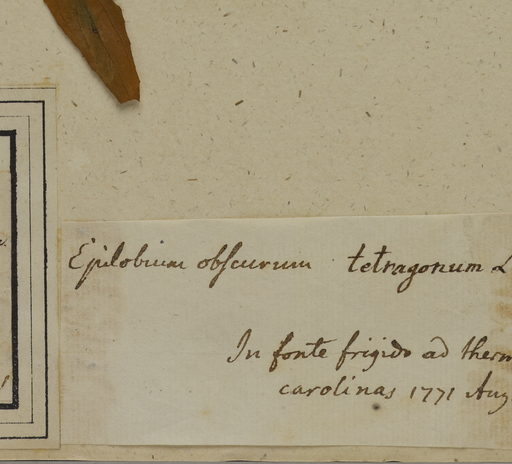 Epilobium obscurum tetragonum L
In fonte frigido ad therm
carolinas 1771 Aug